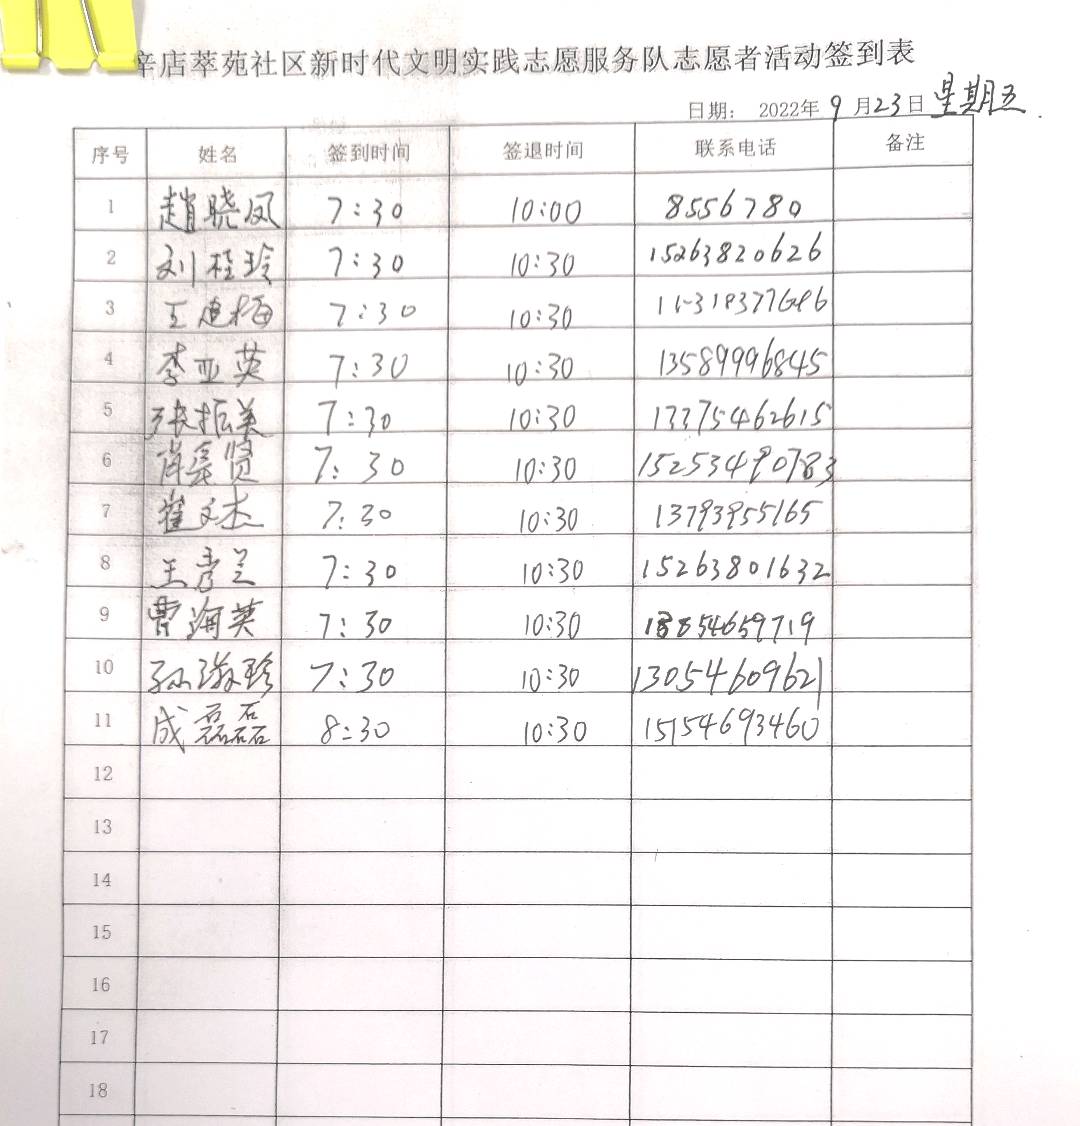 辛店萃苑社区新时代文明实践志愿服务队志愿者活动签到表
日期： 2022年 9 月 23 日 星期五
序号 姓名 签到时间 签退时间 联系电话 备注
1 赵晓凤 7:30 10:00 8556780
2 刘桂玲 7:30 10:30 15263820626
3 王建梅 7:30 10:30
4 李亚英 7:30 10:30 13589996845
5 张振美 7:30 10:30 13375462615
6 肖 贤 7:30 10:30 15253490783
7 崔文杰 7:30 10:30 13793955165
8 王秀兰 7:30 10:30 15263801632
9 曹海英 7:30 10:30 18854659719
10 孙淑珍 7:30 10:30 13054609621
11 成磊磊 8:30 10:30 15154693460
12
13
14
15
16
17
18